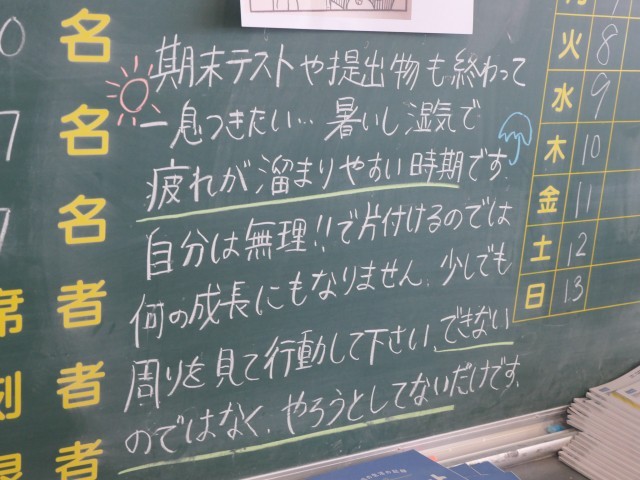 0 名
7 名
7 名
席 者
刻 者
者
期末テストや提出物も終わって
一息つきたい… 暑いし湿気で
疲れが溜まりやすい時期です.
自分は無理!!で片付けるのでは
何の成長にもなりません. 少しでも
周りを見て行動して下さい. できない
のではなく、やろうとしてないだけです.
月 7
火 8
水 9
木 10
金 11
土 12
日 13